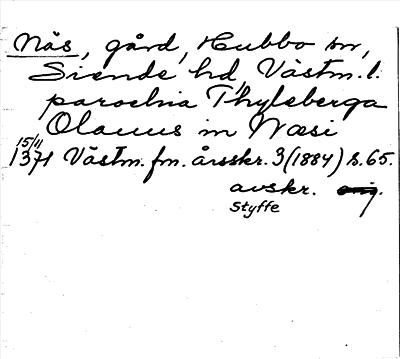 Näs, gård, Hubbo sn,
Siende hd, Västm. l.
parochia Thyleberga
Olauus in Næsi
15/11
1371 Västm. fm. årsskr. 3 (1884) s. 65.
avskr. orig.
Styffe